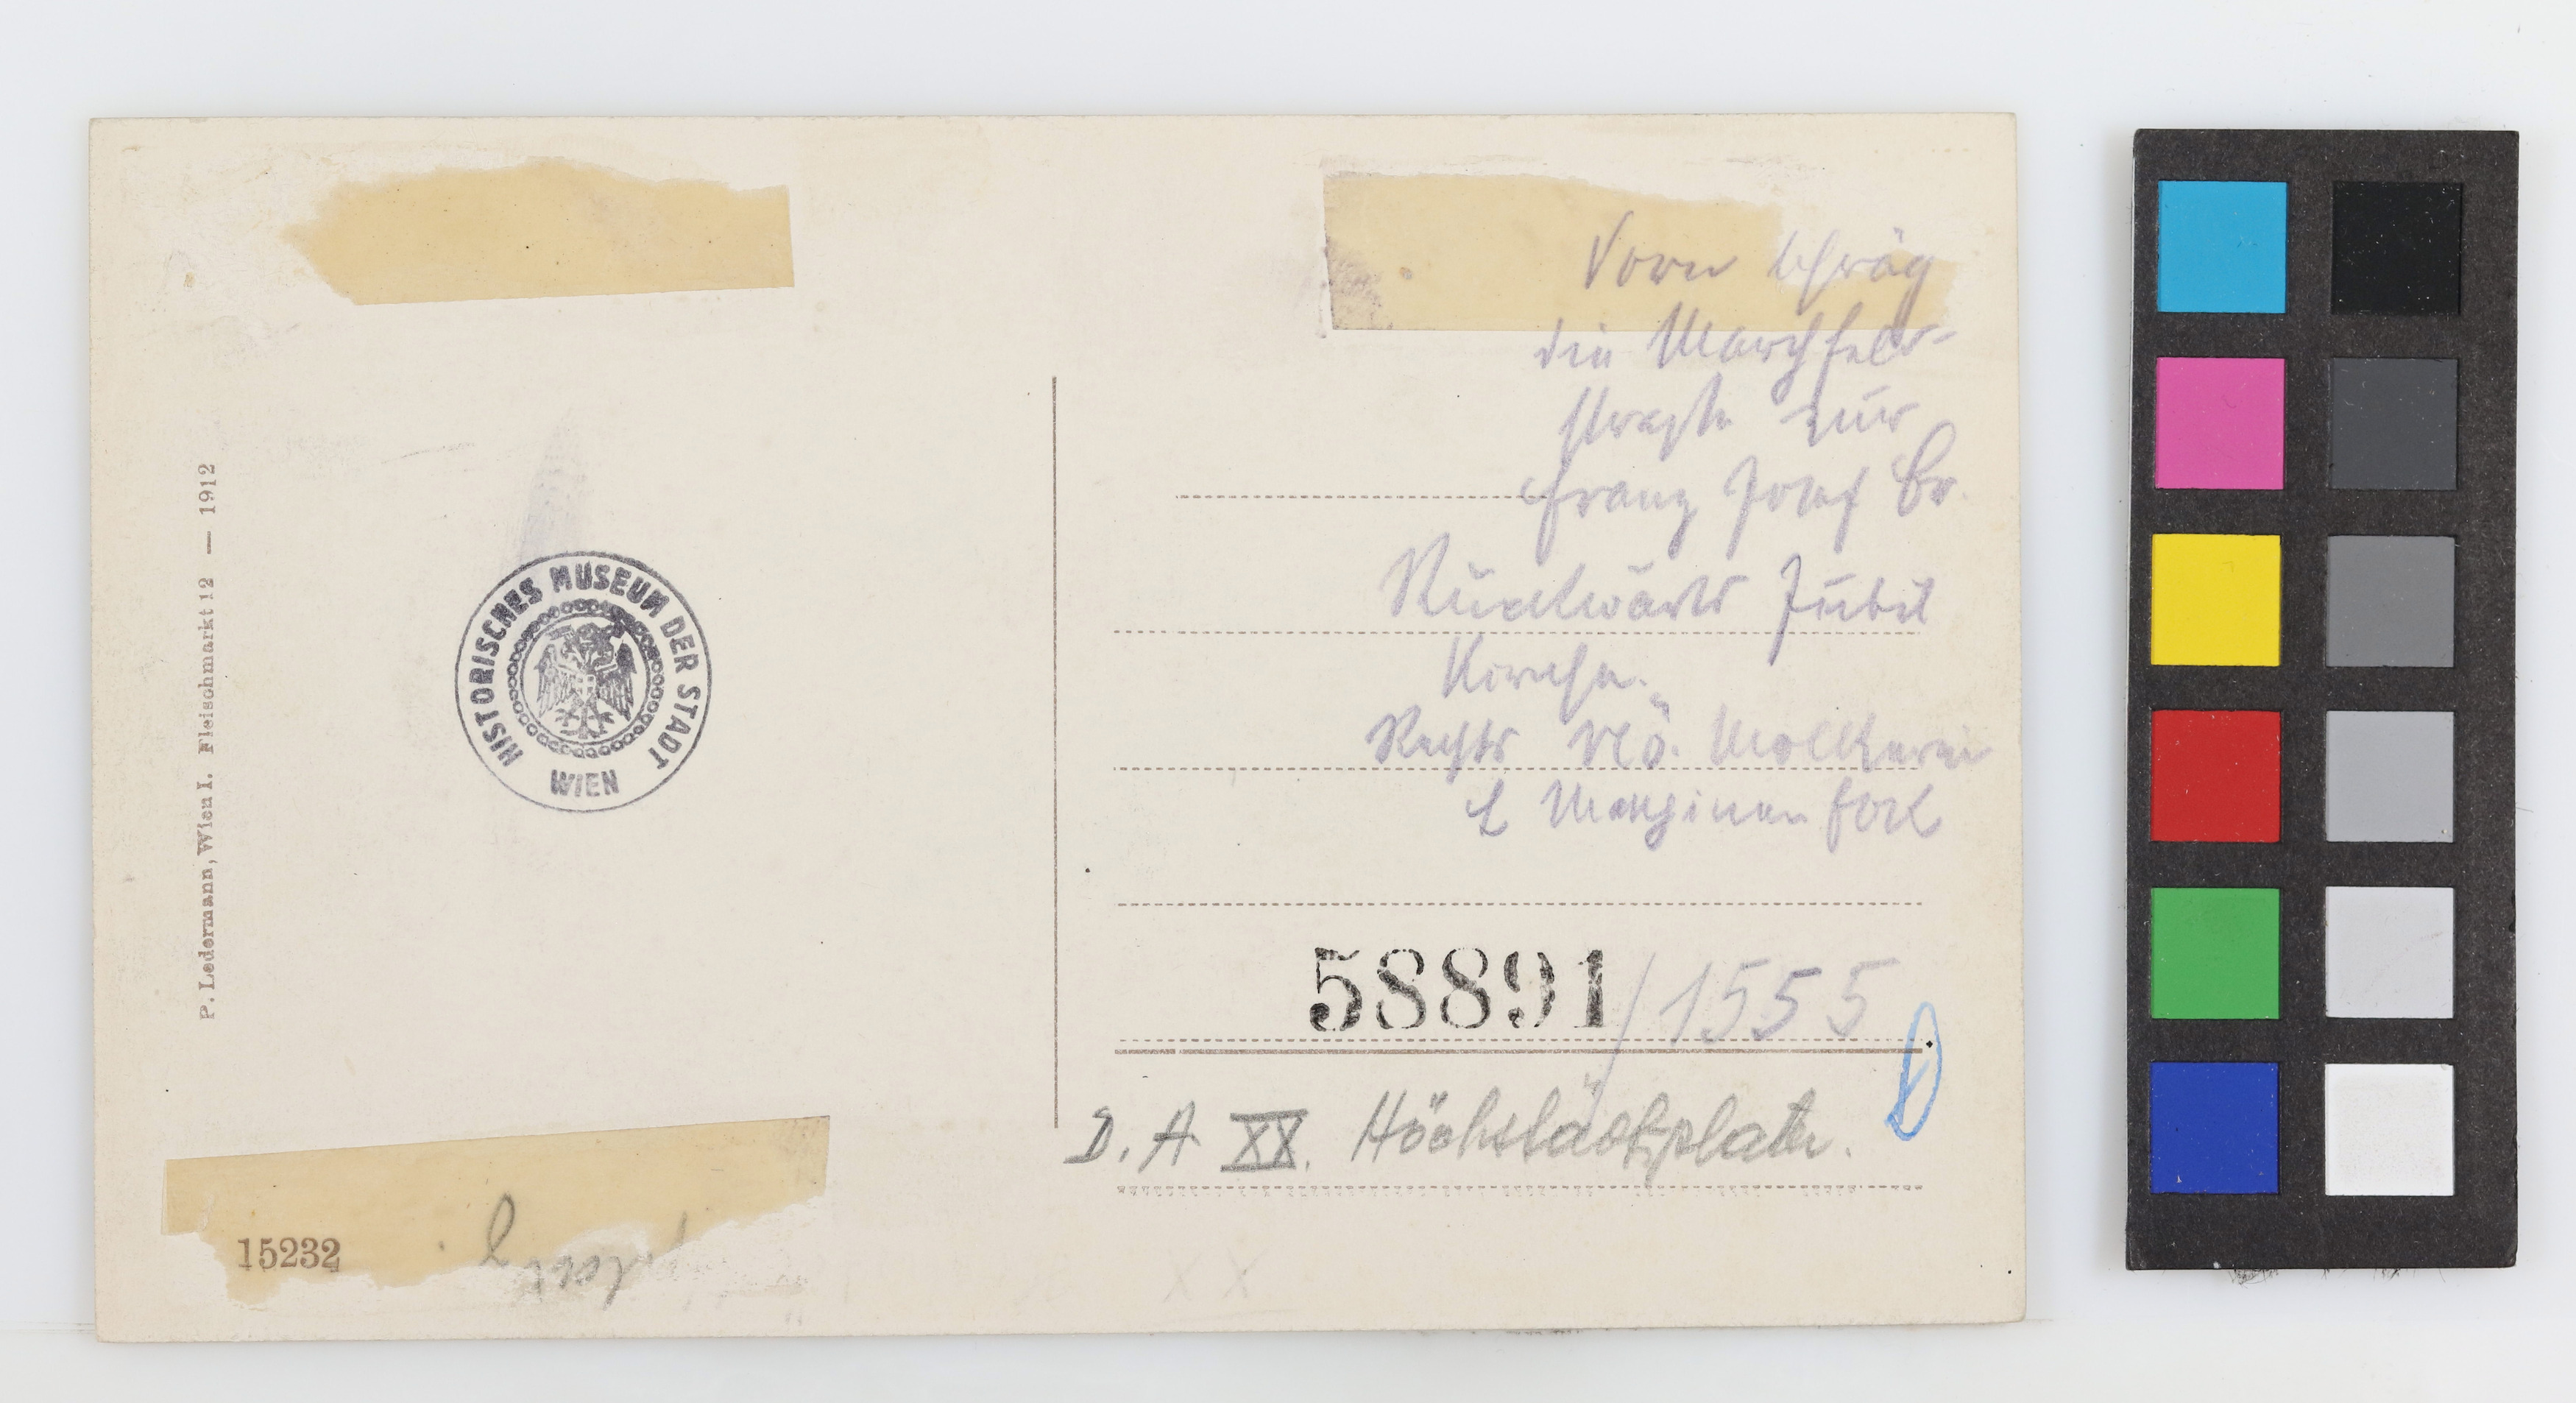 P. Ledermann, Wien I. Fleischmarkt 12 — 1912
HISTORISCHES MUSEUM DER STADT
WIEN
15232
Vorn schräg
die Marchfeld-
straße zur
Franz Josef Br
Rückwärts Jubil
Kirche.
Rechts NÖ. Molkerei
L Maschinen
58891/1555
D. A XX. Höchstädtplatz.
XX